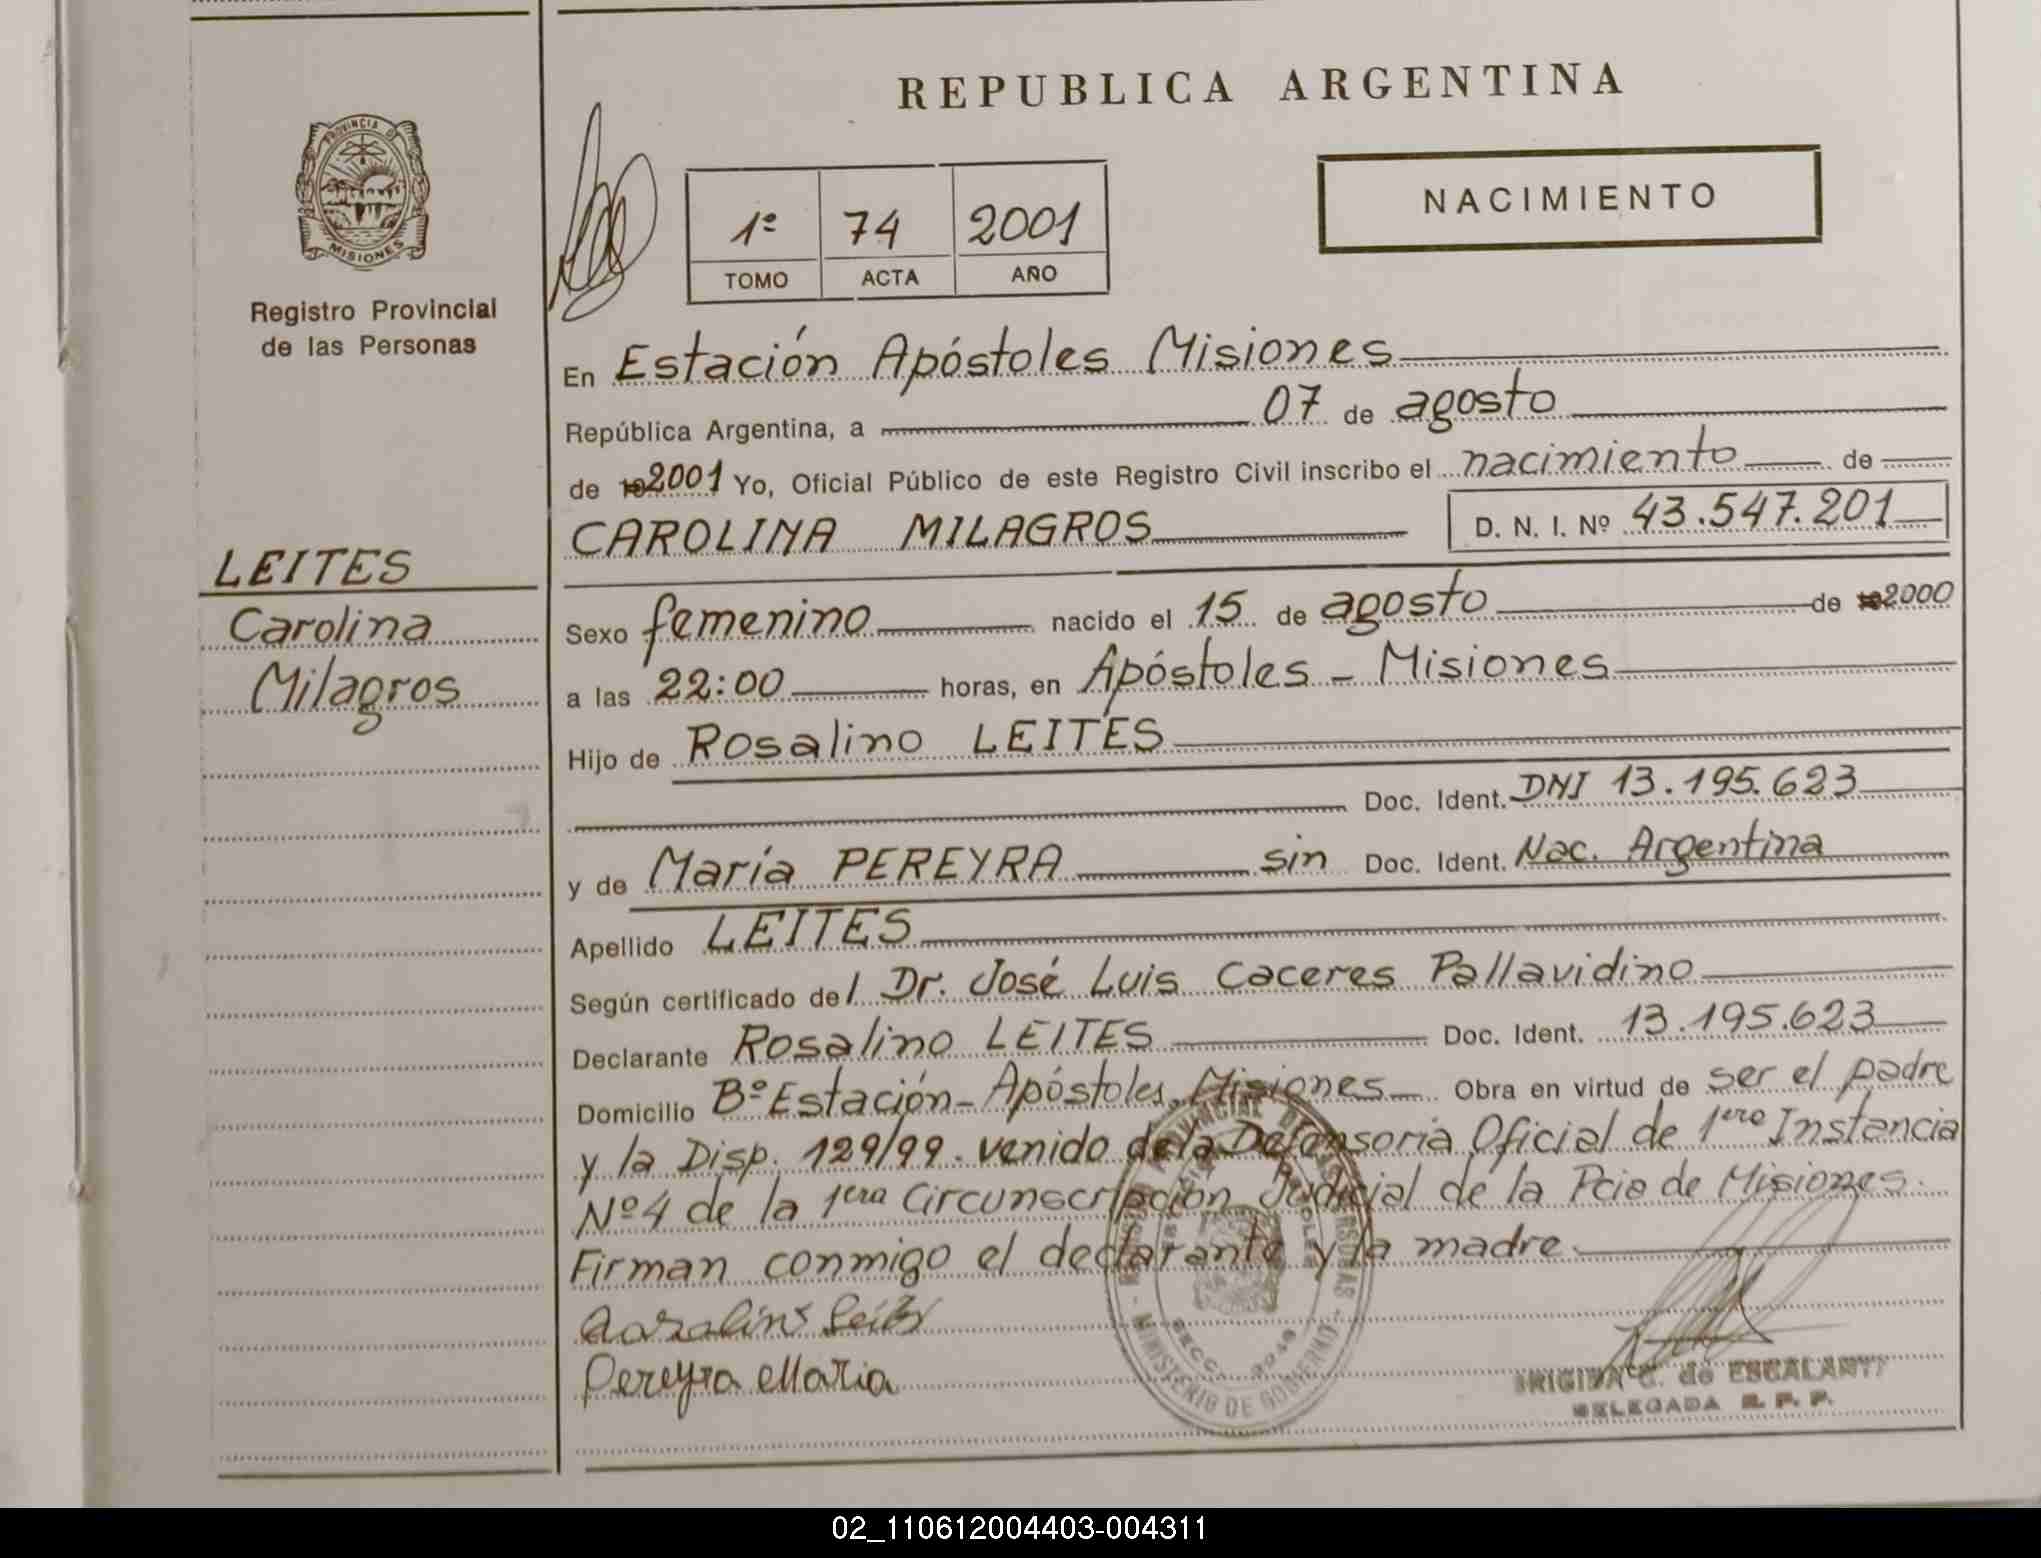 REPUBLICA ARGENTINA
PROVINCIA DE
MISIONES
Registro Provincial
de las Personas
NACIMIENTO
1º 74 2001
TOMO ACTA AÑO
En Estación Apóstoles Misiones
República Argentina, a 07 de agosto
de 2001 Yo, Oficial Público de este Registro Civil inscribo el nacimiento de
CAROLINA MILAGROS D. N. I. Nº 43.547.201
LEITES
Carolina
Milagros
Sexo femenino nacido el 15 de agosto de 2000
a las 22:00 horas, en Apóstoles - Misiones
Hijo de Rosalino LEITES
Doc. Ident. DNI 13.195.623
y de María PEREYRA sin Doc. Ident. Nac. Argentina
Apellido LEITES
Según certificado del Dr. José Luis Caceres Pallavidino
Declarante Rosalino LEITES Doc. Ident. 13.195.623
Domicilio Bº Estación - Apóstoles, Misiones Obra en virtud de ser el padre
y la Disp. 129/99. venido de la Defensoria Oficial de 1era Instancia
Nº4 de la 1era Circunscripción Judicial de la Pcia de Misiones.
Firman conmigo el declarante y la madre
Pereyra Maria
MINISTERIO DE GOBIERNO
C. de ESCALANTE
DELEGADA R. P. P.
02_110612004403-004311